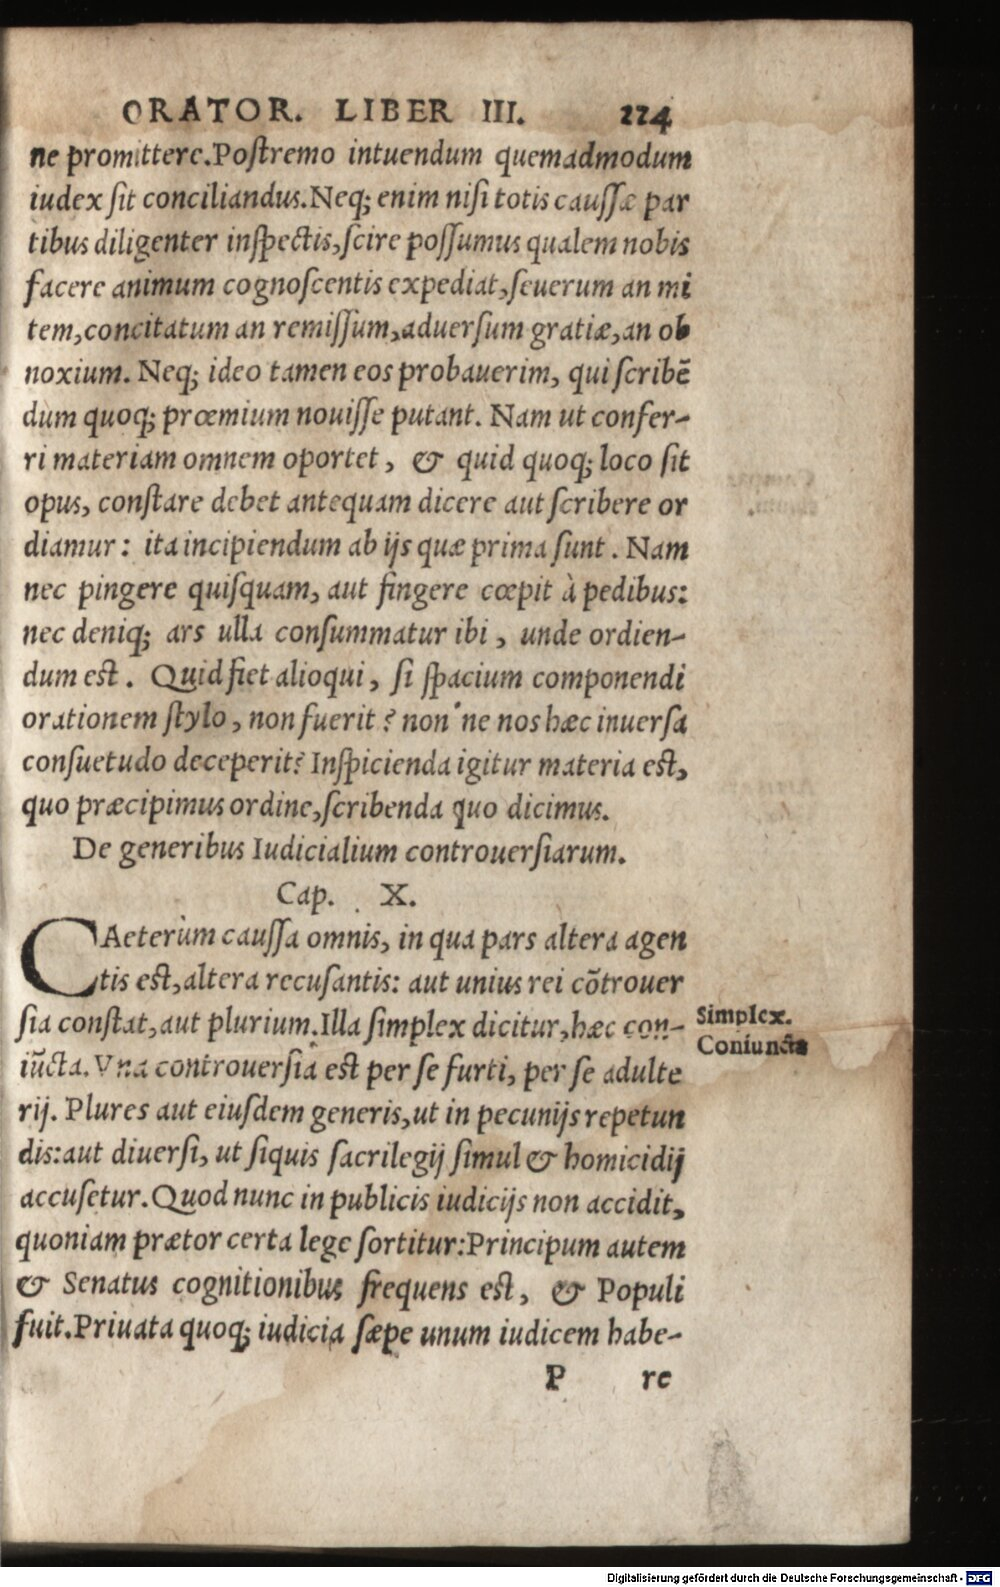 ORATOR. LIBER III. 224
ne promittere.Poſtremo intuendum quemadmodum
iudex ſit conciliandus.Neq; enim niſi totis cauſſæ par
tibus diligenter inſpectis,ſcire poſſumus qualem nobis
facere animum cognoſcentis expediat,ſeuerum an mi
tem,concitatum an remiſſum,aduerſum gratiæ,an ob
noxium. Neq; ideo tamen eos probauerim, qui ſcribē
dum quoq; prœmium nouiſſe putant. Nam ut confer-
ri materiam omnem oportet, & quid quoq; loco ſit
opus, conſtare debet antequam dicere aut ſcribere or
diamur: ita incipiendum ab ijs quæ prima ſunt. Nam
nec pingere quiſquam, aut fingere cœpit à pedibus:
nec deniq; ars ulla conſummatur ibi, unde ordien-
dum eſt. Quid fiet alioqui, ſi ſpacium componendi
orationem ſtylo, non fuerit? non'ne nos hæc inuerſa
conſuetudo deceperit? Inſpicienda igitur materia eſt,
quo præcipimus ordine,ſcribenda quo dicimus.
De generibus Iudicialium controuerſiarum.
Cap. X.
CAeterùm cauſſa omnis, in qua pars altera agen
tis eſt,altera recuſantis: aut unius rei cōtrouer
ſia conſtat,aut plurium.Illa ſimplex dicitur,hæc con-
iūcta. Vna controuerſia eſt per ſe furti, per ſe adulte
rij. Plures aut eiuſdem generis,ut in pecunijs repetun
dis:aut diuerſi, ut ſiquis ſacrilegij ſimul & homicidij
accuſetur.Quod nunc in publicis iudicijs non accidit,
quoniam prætor certa lege ſortitur:Principum autem
& Senatus cognitionibus frequens eſt, & Populi
fuit.Priuata quoq; iudicia ſæpe unum iudicem habe-
P re
Simplex.
Coniuncta
Digitalisierung gefördert durch die Deutsche Forschungsgemeinschaft - DFG